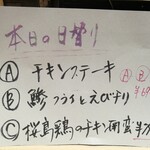 本日の日替り
Ⓐ チキンステーキ
Ⓑ 鯵フライとえびフライ
Ⓒ 桜島鶏のチキン南蛮
Ⓐ Ⓑ